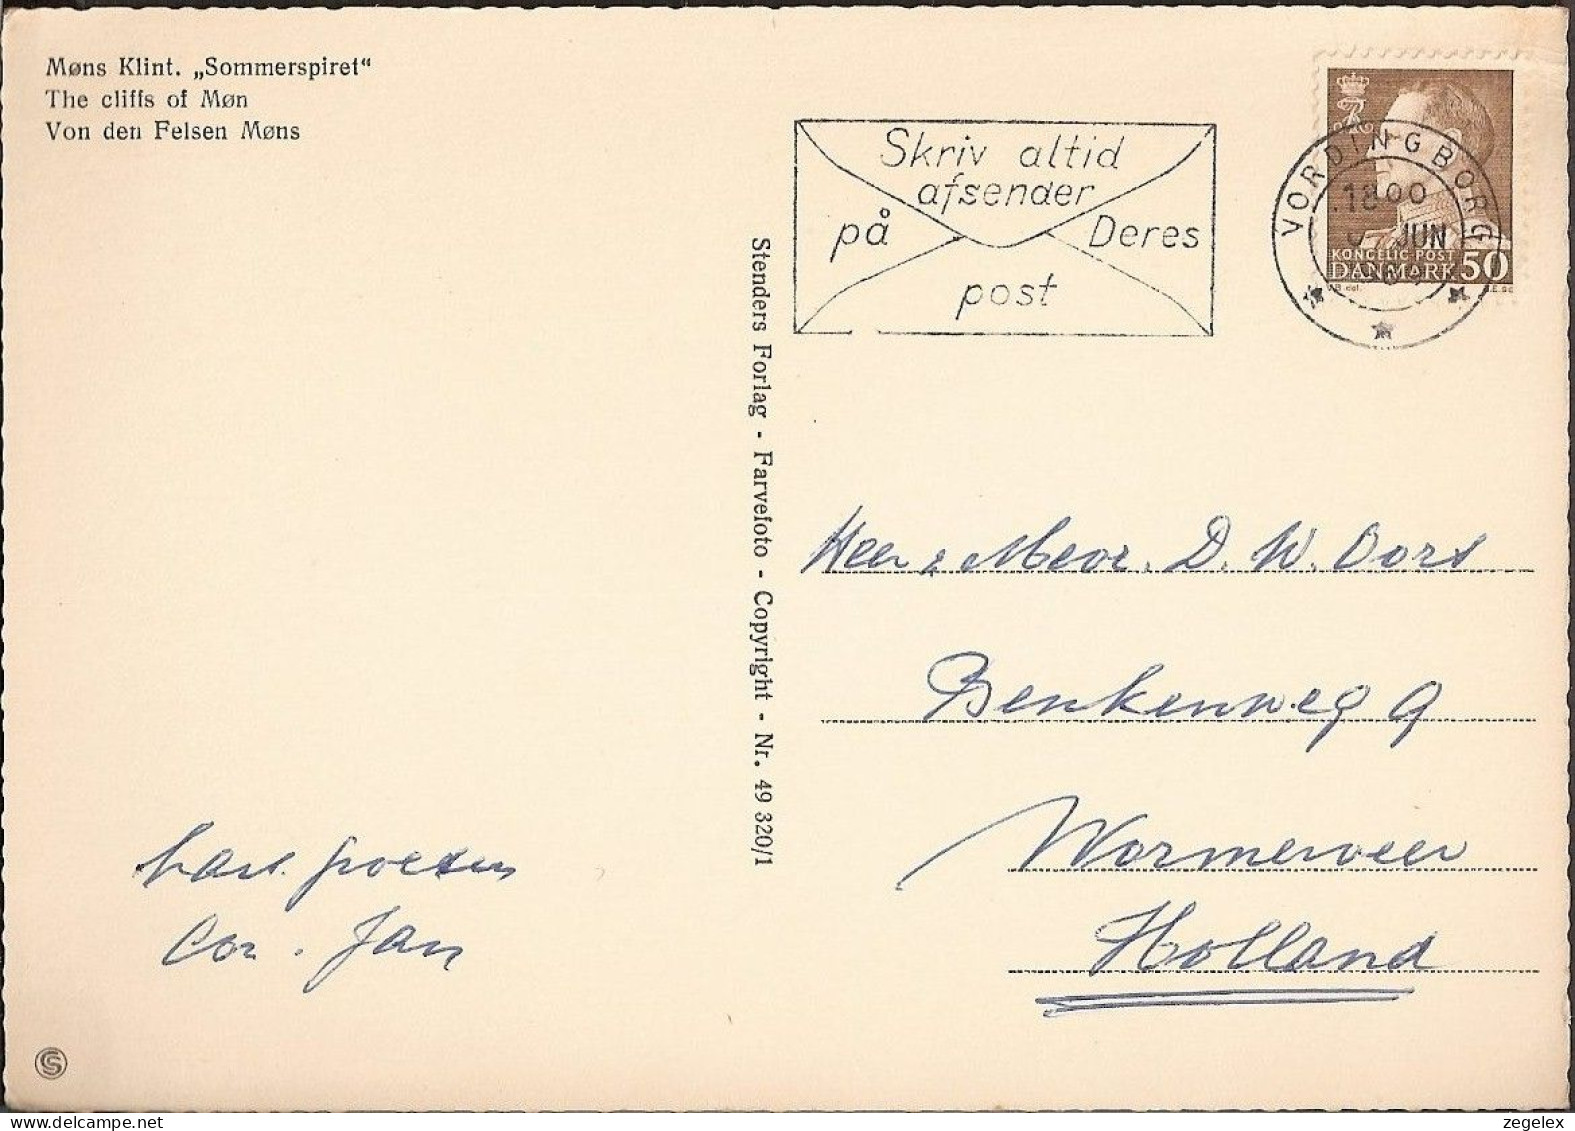 Møns Klint. „Sommerspiret“
The cliffs of Møn
Von den Felsen Møns
Skriv altid
afsender
på Deres
post
VORDINGBORG
18 00
JUN
KONGELIG POST
DANMARK 50
Stenders Forlag - Farvefoto - Copyright - Nr. 49 320/1
Heer & Mevr. D. W. Oors
Benkenweg 9
Wormerveer
Holland
hart. groeten
Cor. Jan
zegelex